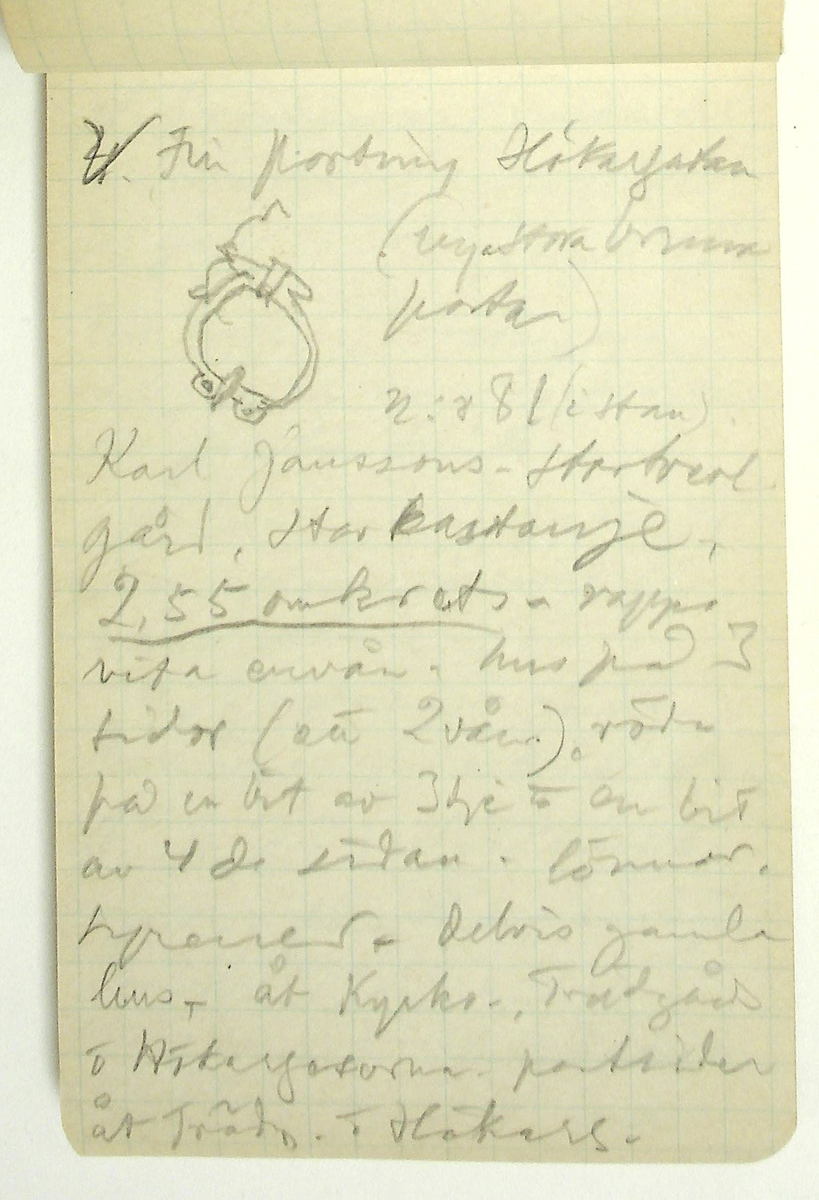 Fin portring Hökargatan
(nya stora
portar)
n:r 81 (i stan).
Karl Janssons-
gård, stor kastanje,
2,55 omkrets -
vita envån. hus på 3
sidor (ett 2vån.), röda
på en bit av 3dje o en bit
av 4de sidan. lönnar.
syrener - delvis gamla
hus, åt Kyrko-, Trädgårds
o Hökargatorna. portsidor
åt Trädg. o Hökarg.